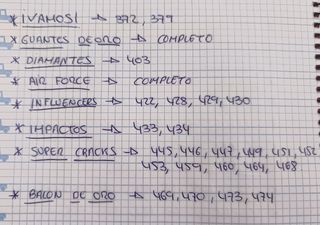 * ¡VAMOS! → 372, 379
* GUANTES DE ORO → COMPLETO
* DIAMANTES → 403
* AIR FORCE → COMPLETO
* INFLUENCERS → 422, 428, 429, 430
* IMPACTOS → 433, 434
* SUPER CRACKS → 445, 446, 447, 449, 451, 452
453, 459, 460, 464, 468
* BALON DE ORO → 469, 470, 473, 474